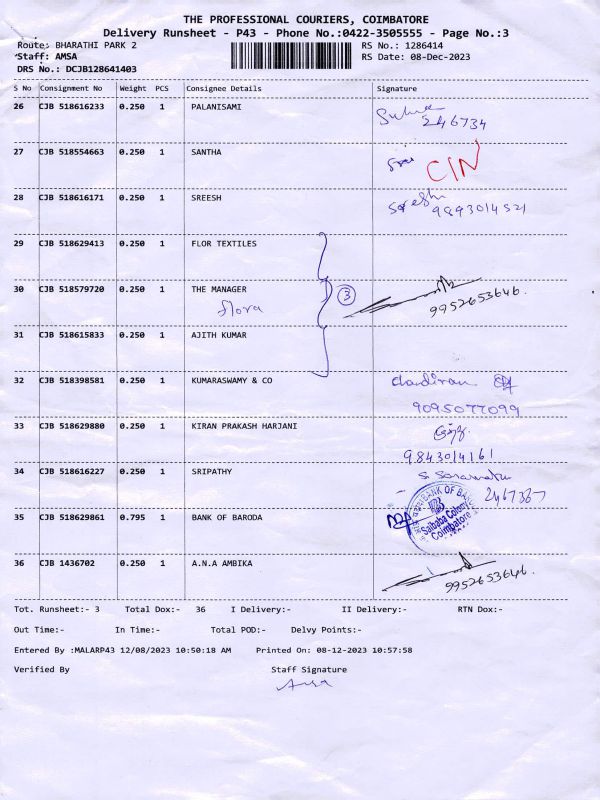 THE PROFESSIONAL COURIERS, COIMBATORE
Delivery Runsheet - P43 - Phone No.:0422-3505555 - Page No.:3
Route: BHARATHI PARK 2 RS No.: 1286414
Staff: AMSA RS Date: 08-Dec-2023
DRS No.: DCJB128641403
S No Consignment No Weight PCS Consignee Details Signature
26 CJB 518616233 0.250 1 PALANISAMI
246734
27 CJB 518554663 0.250 1 SANTHA
CIN
28 CJB 518616171 0.250 1 SREESH Sreesh
9893014521
29 CJB 518629413 0.250 1 FLOR TEXTILES
30 CJB 518579720 0.250 1 THE MANAGER 3
flora 9952653646.
31 CJB 518615833 0.250 1 AJITH KUMAR
32 CJB 518398581 0.250 1 KUMARASWAMY & CO
9095077099
33 CJB 518629880 0.250 1 KIRAN PRAKASH HARJANI
9843014161
34 CJB 518616227 0.250 1 SRIPATHY
BANK OF
35 CJB 518629861 0.795 1 BANK OF BARODA Saibaba Colony
Coimbatore
36 CJB 1436702 0.250 1 A.N.A AMBIKA
9952653646.
Tot. Runsheet:- 3 Total Dox:- 36 I Delivery:- II Delivery:- RTN Dox:-
Out Time:- In Time:- Total POD:- Delvy Points:-
Entered By :MALARP43 12/08/2023 10:50:18 AM Printed On: 08-12-2023 10:57:58
Verified By Staff Signature
Amsa